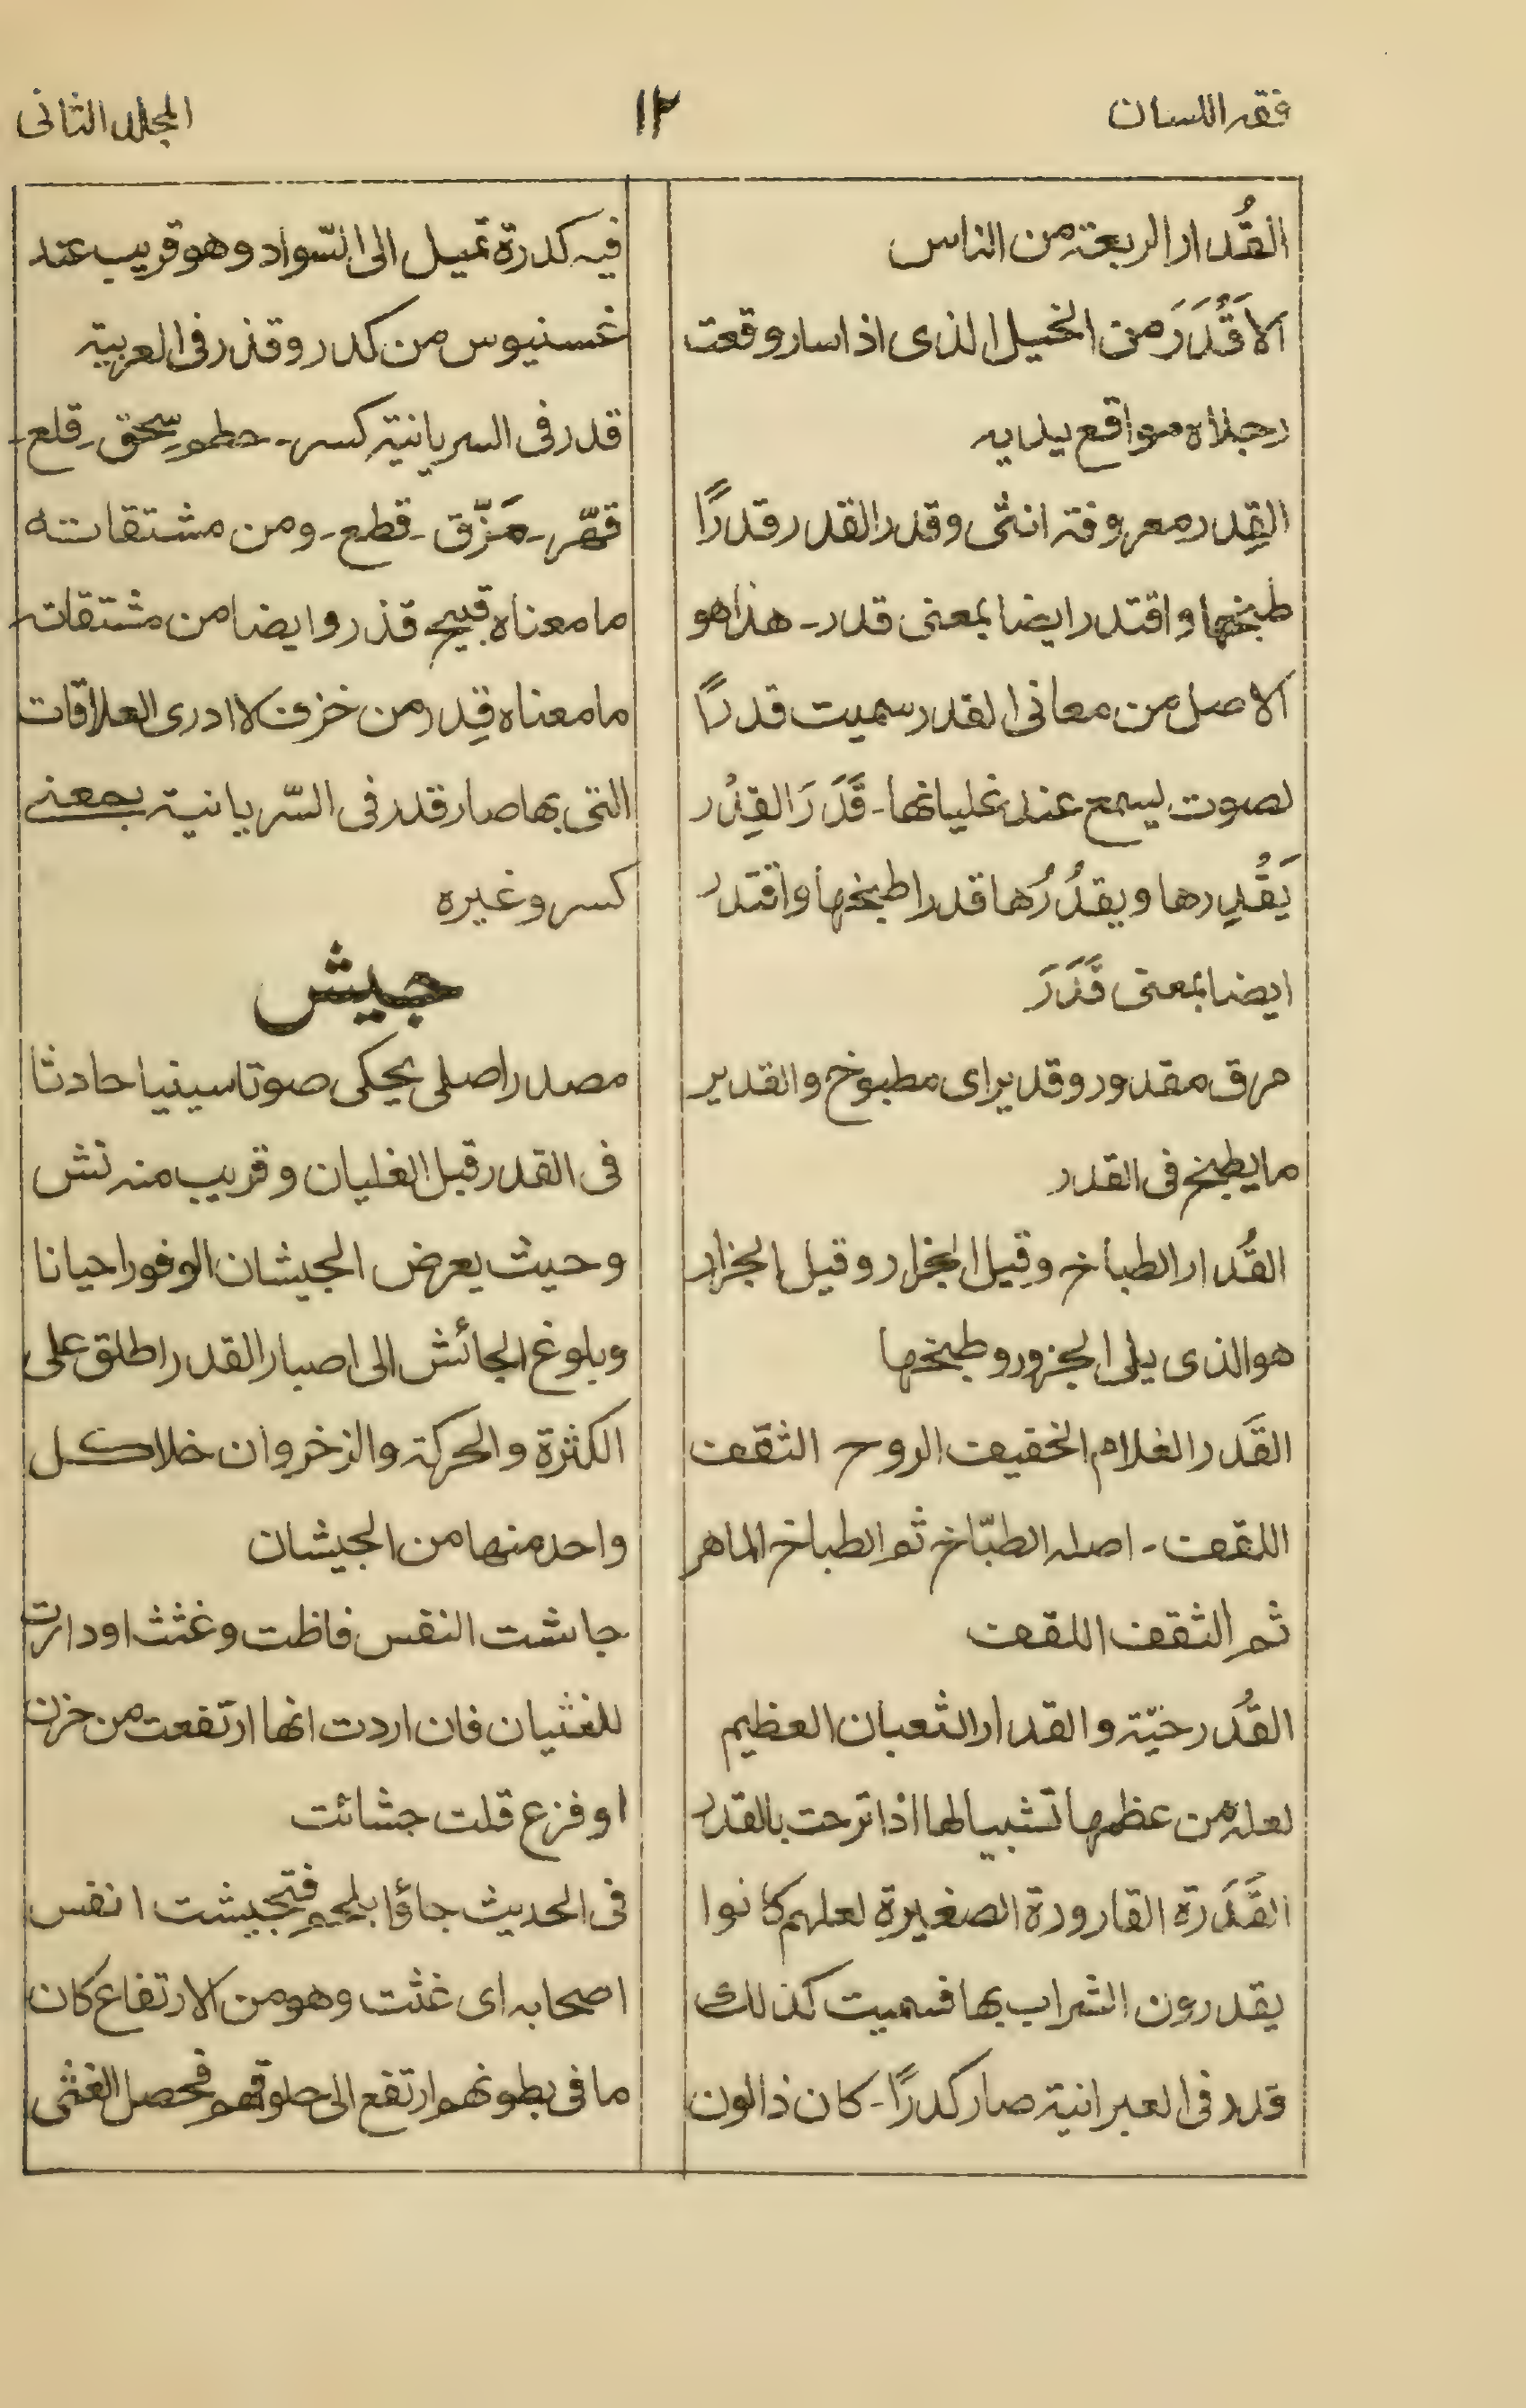 فقه اللسان
١٢
المجلد الثانی
القُدار الربعة من الناس
الاَقْدَرَ من الخیل الذی اذا سار وقعت
رجلاه مواقع یدایه
القِدر معروفة انثی وقدر القدر قدرًا
طبخها واقتدر ایضا بمعنی قدر - هذا هو
الاصل من معانی القدر سمیت قدرًا
لصوت یسمع عند غلیانها - قَدَرَ القِدْر
یَقْدِرها ویقدُرُها قدرا طبخها واقتدر
ایضا بمعنی قَدَرَ
مرق مقدور وقدیر ای مطبوخ والقدیر
ما یطبخ فی القدر
القُدار الطباخ وقیل الجزار وقیل الجزار
هو الذی یلی الجزور وطبخها
القَدر الغلام الخفیف الروح الثقف
اللقف - اصله الطبّاخ ثم الطباخ الماهر
ثم الثقف اللقف
القُدر حیّة والقدار الثعبان العظیم
لعله من عظمها تشبیها لها اذا ترحت بالقدر
القَدَرَة القارورة الصغیرة لعلهم کانوا
یقدرون الشراب بها فسمیت کذلك
قدر فی العبرانیة صار کدرًا - کان ذا لون
فیه کدرة تمیل الی السّواد وهو قریب عند
غسنیوس من کدر وقذر فی العربیة
قدر فی السریانیة کسر - حطم - سحق - قلع -
قهّر - مَزّق - قطع - ومن مشتقاته
ما معناه قبیح قذر وایضا من مشتقاته
ما معناه قِدر من خزف لا ادری العلاقات
التی بها صار قدر فی السّریانیة بمعنی
کسر وغیره
جیش
مصدر اصلی یحکی صوتا سینیا حادثا
فی القدر قبل الغلیان وقریب منه نش
وحیث یعرض الجیشان الوفور احیانا
وبلوغ الجائش الی اصبار القدر اطلق علی
الکثرة والحرکة والزخر وان خلا کل
واحد منها من الجیشان
جاشت النفس فاظت وغثث او دارت
للغثیان فان اردت انها ارتفعت من حزن
او فزع قلت جشائت
فی الحدیث جاؤا بلحم فتجیشت انفس
اصحابه ای غثت وهو من الارتفاع کان
ما فی بطونهم ارتفع الی حلوقهم فحصل الغثی